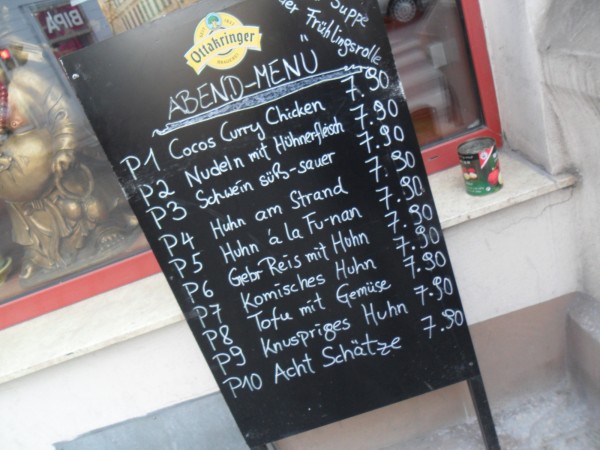 BIPA
Ottakringer
BRAUEREI
Suppe
oder Frühlingsrolle
ABEND-MENÜ
P1 Cocos Curry Chicken 7.90
P2 Nudeln mit Hühnerfleisch 7.90
P3 Schwein süß-sauer 7.90
P4 Huhn am Strand 7.90
P5 Huhn á la Fu-nan 7.90
P6 Gebr Reis mit Huhn 7.90
P7 Komisches Huhn 7.90
P8 Tofu mit Gemüse 7.90
P9 Knuspriges Huhn 7.90
P10 Acht Schätze 7.90